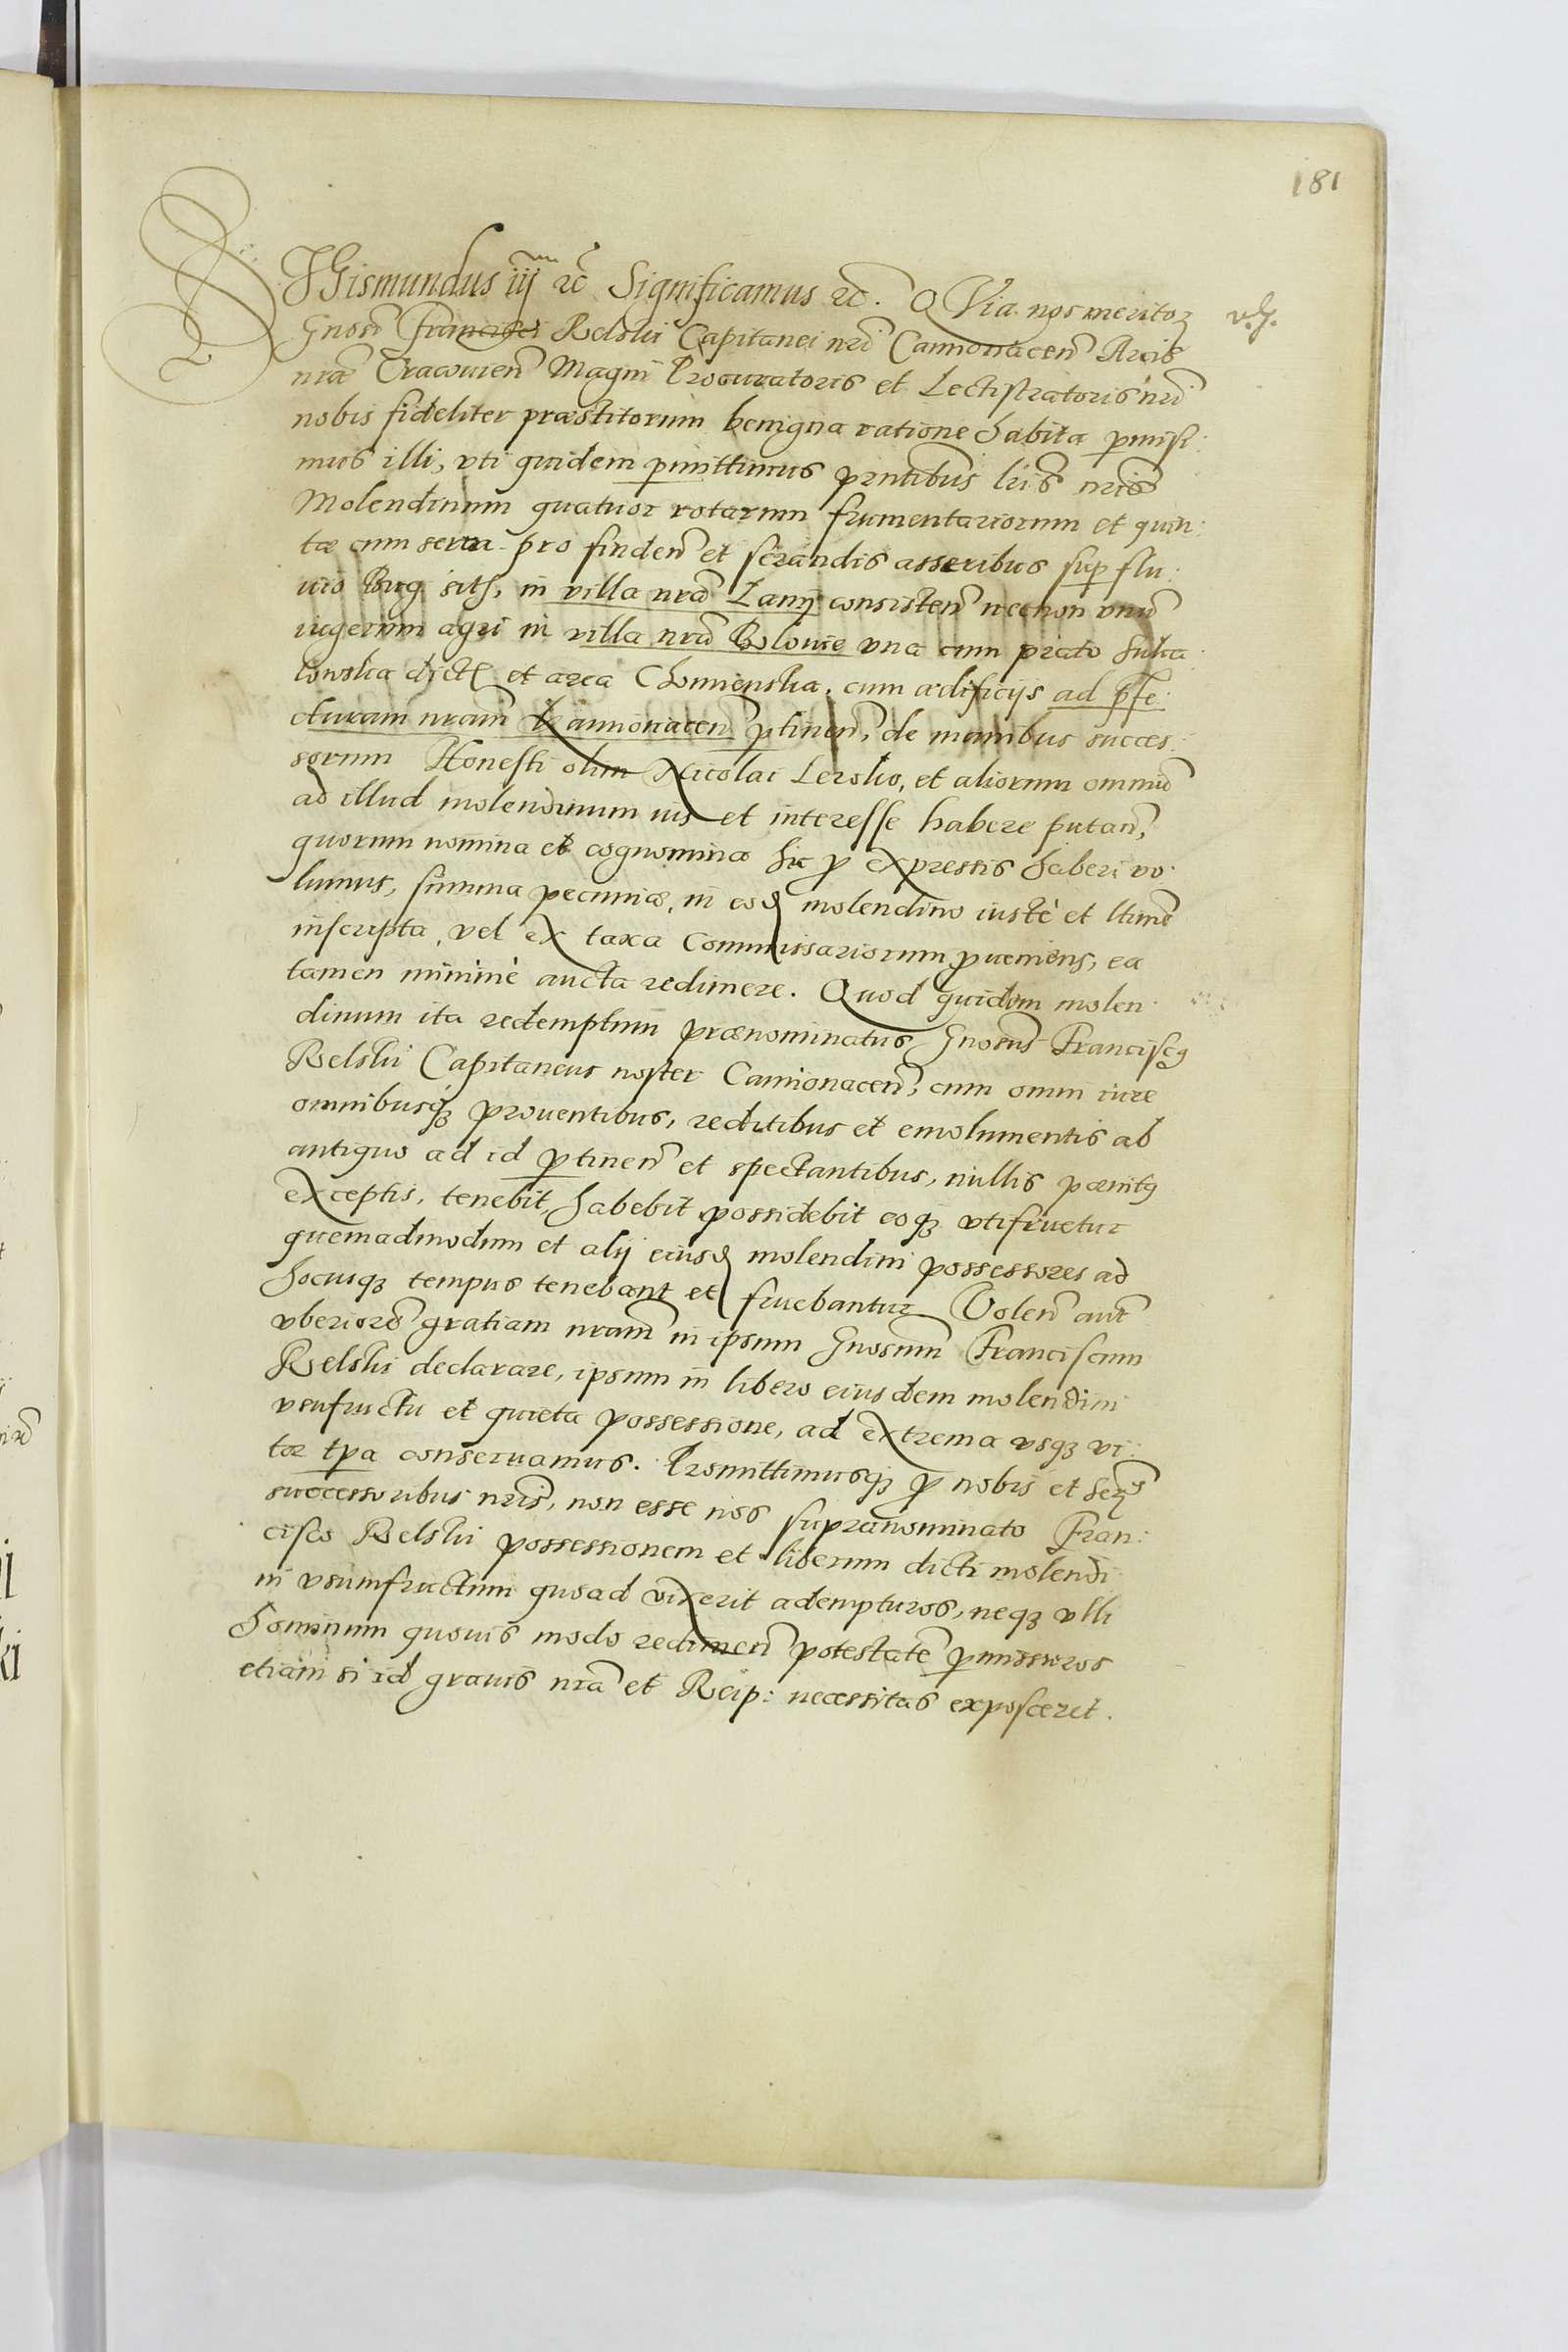 181
SIGismundus iij rc Significamus rc. QVia nos meritoꝝ
Gnosi Francisci Relski Capitanei nri Camionacen̄ Arcis
nræ Cracovien̄ Magni Procuratoris et Lectistratoris nri
nobis fideliter præstitorum benigna ratione habita pmisi:
mus illi, vti quidem pmittimus pntibus lris nris
Molendinum quatuor rotarum frumentariorum et quin:
tæ cum serra pro finden̄ et serandis asseribus sup flu:
uio Bug sitũ, in villa nra Lanÿ consisten̄ necnon vnũ
iugerum agri in villa nra Wolouie vna cum prato
dictũ et area cum ædificijs ad pfe:
cturam nram Kamionacen̄ ptinen̄, de manibus succes:
sorum Honesti olim Nicolai et aliorum omniũ
ad illud molendinum ius et interesse habere putan̄,
quorum nomina et cognomina hic p expressis haberi vo:
lumus, summa pecuniæ, in eod molendino iustè et ltimè
inscripta, vel ex taxa Commissariorum pueniens, ea
tamen minimè aucta redimere. Quod quidem molen:
dinum ita redemptum prænominatus Gnosus Franciscꝰ
Relski Capitaneus noster Camionacen̄, cum omni iure
omnibusqꝫ prouentibus, reditibus et emolumentis ab
antiquo ad id ptinen̄ et spectantibus, nullis pænitꝰ
exceptis, tenebit habebit possidebit eoqꝫ vtifruetur
quemadmodum et alij eiusd molendini possessores ad
hocusqꝫ tempus tenebant et fruebantur Volen̄ aut̄
vberiorē gratiam nram in ipsum Gnosum Franciscum
Relski declarare, ipsum in libero eiusdem molendini
vsufructu et quieta possessione, ad extrema vsqꝫ vi:
tæ tpa conseruamus. Promittimusqꝫ p nobis et Serꝰ
successoribus nris, non esse nos supranominato Fran:
cisco Relski possessionem et liberum dicti molendi
ni vsumfructum quoad vixerit adempturos, neqꝫ vlli
hominum quouis modo redimen̄ potestatē pmissuros
etiam si id grauis nra et Reip: necessitas exposceret.